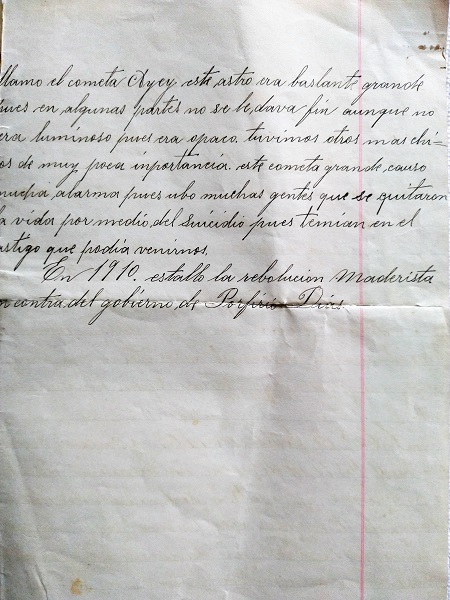 llamo el cometa Ayey este astro era bastante grande
pues en algunas partes no se le dava fin aunque no
era luminoso pues era opaco. tuvimos otros mas chi=
os de muy poca inportancia. este cometa grande causo
mucha alarma pues ubo muchas gentes que se quitaron
la vida por medio del suicidio pues temian en el
astigo que podia venirnos.
En 1910. estallo la rebolucion Maderista
n contra del gobierno de Porfirio Dias.